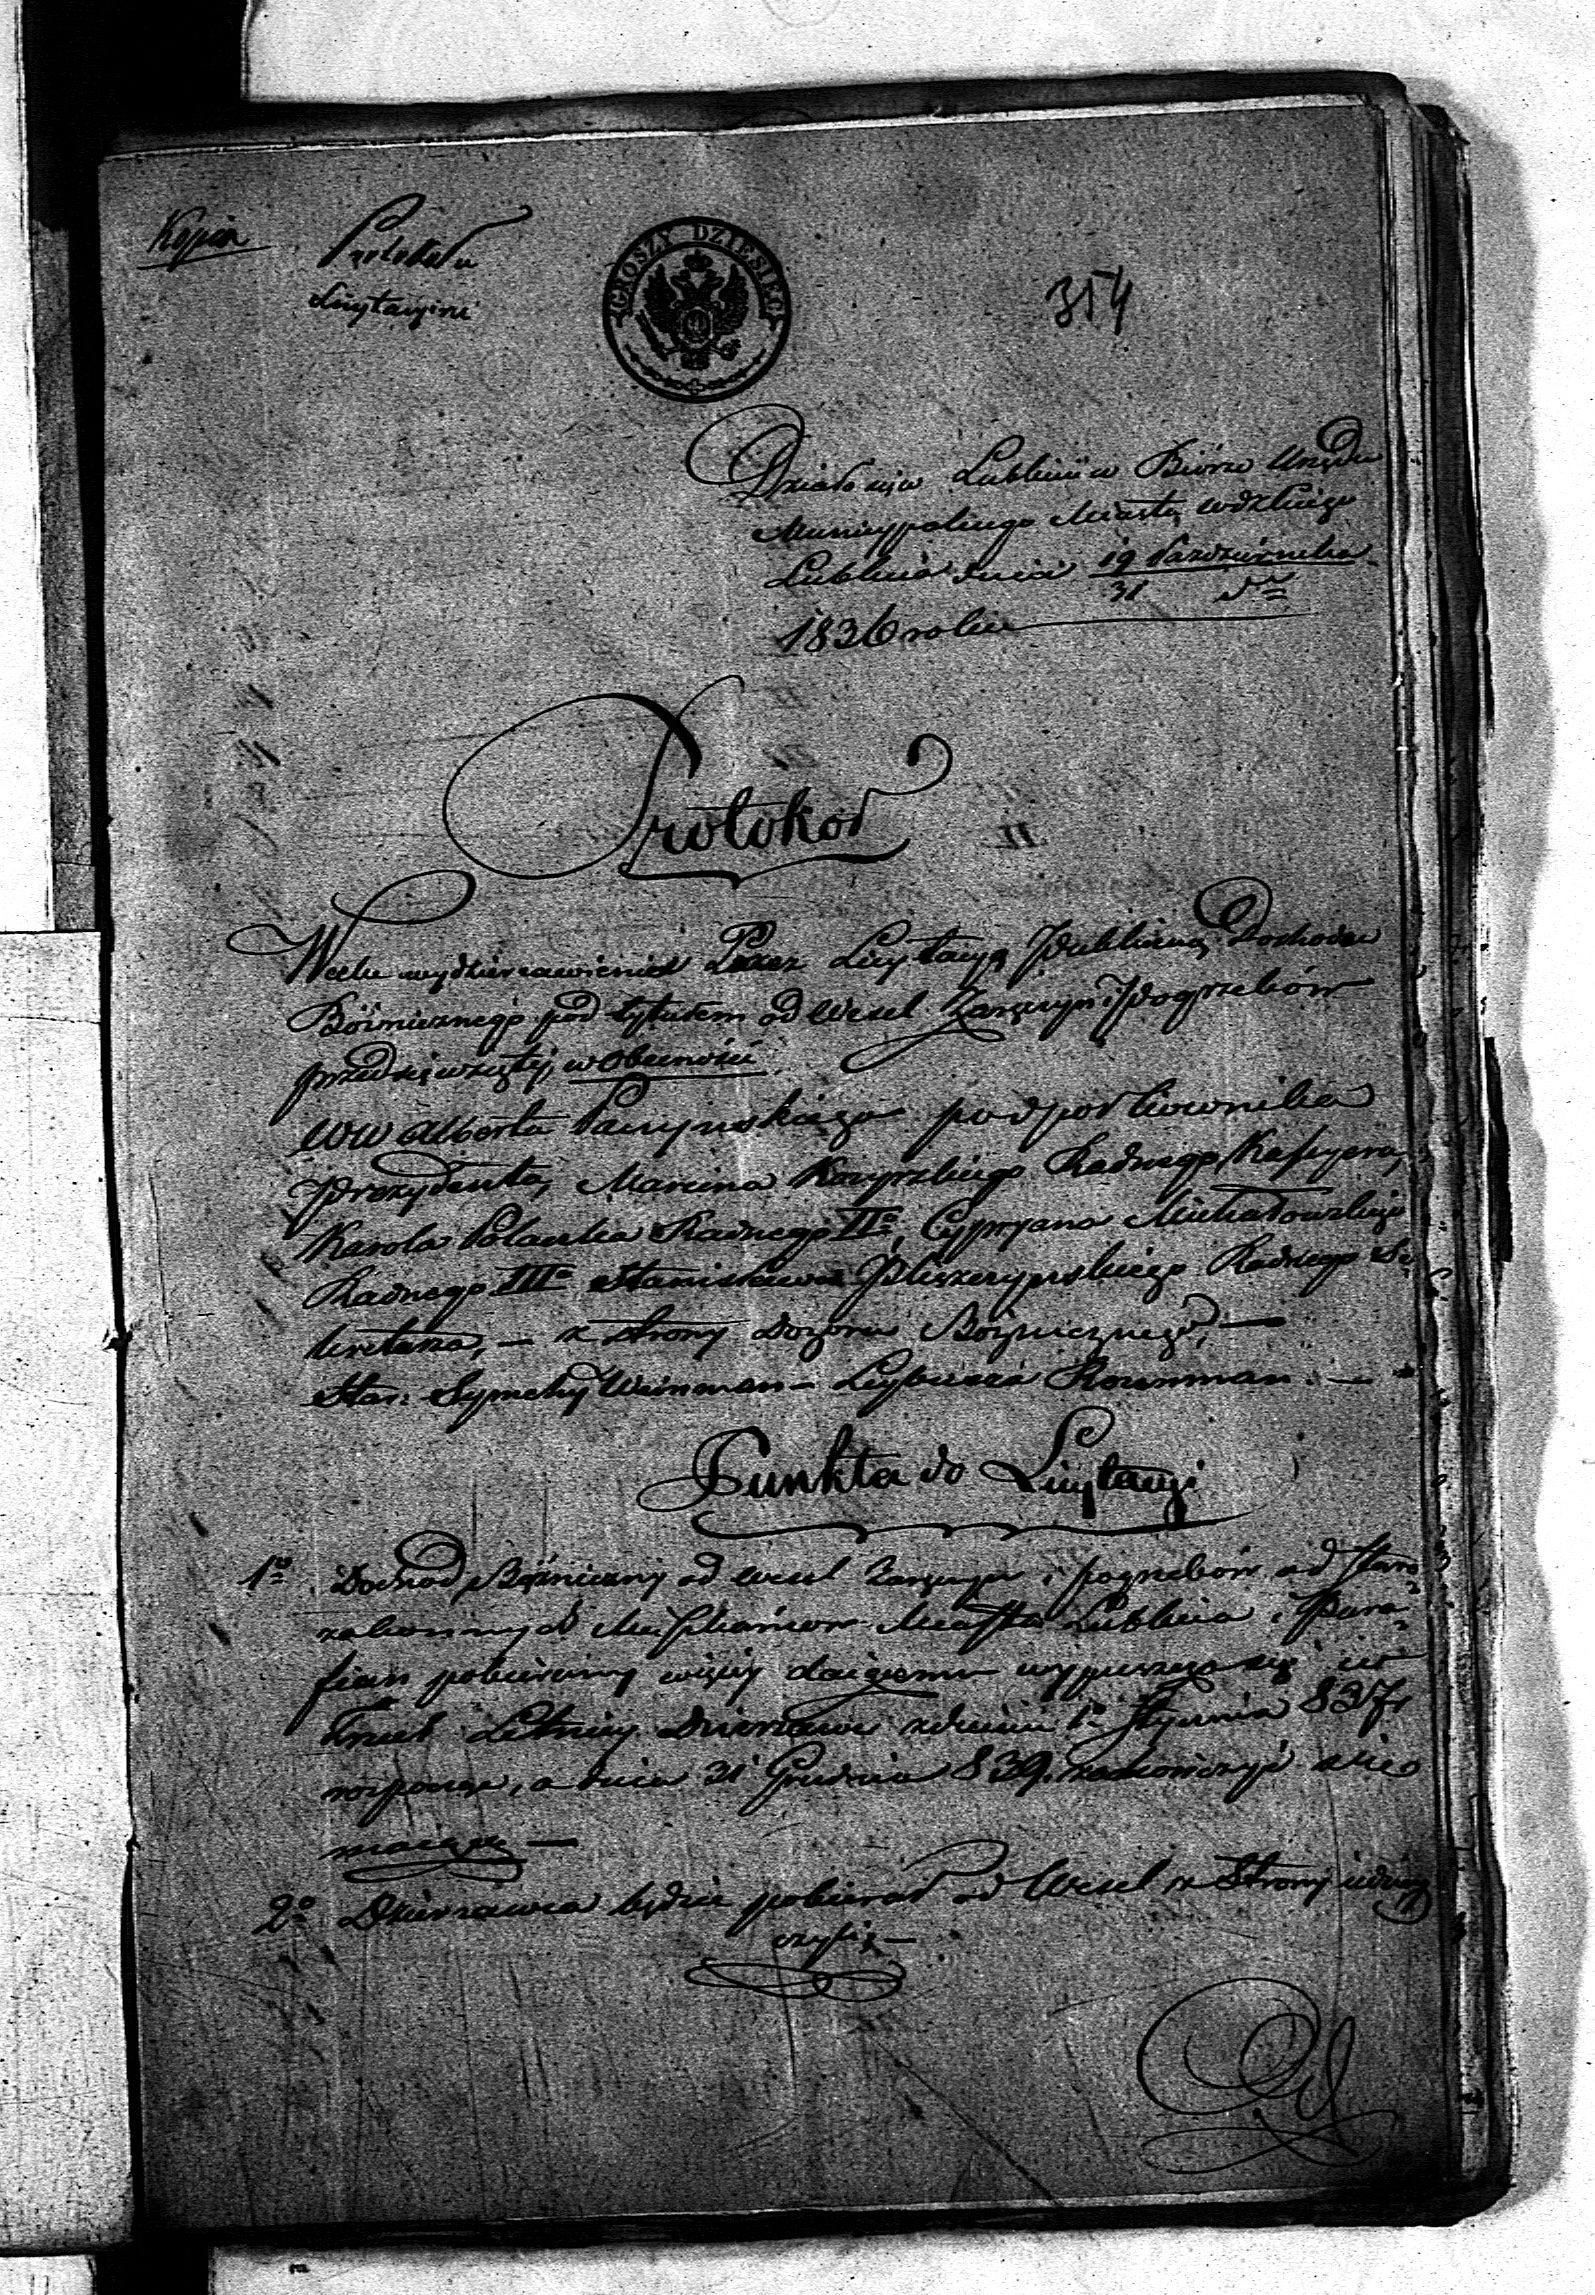 Kopia
Protokołu
Licytacyini
GROSZY DZIESIĘĆ
314
Działo się w Lublinie w Biórze Urzędu
Municypalnego Miasta wdzkiego
Lublina dnia 19 Października
31 dto
1836 roku
Protokoł
W celu wydzierzawienia Przez Licytacyą Publiczną Dochodu
Bóżnicznego pod tytułem od Wesel Zaręczyn i Pogrzebów
przedsięwziętej w Obecności
WW Alberta podpółkownika
Prezydenta, Marcina Radnego Kassyera,
Karola Radnego IIo, Cypryana Michałowskiego
Radnego IIIo Stanisława Radnego Se-
kretarza, — z strony Dozoru Bóżnicznego, —
Star: Symchy Weinman — Leybusia Rozenman. —
Punkta do Licytacyi
1o Dochód Bóżniczny od wesel Zaręczyn i pogrzebów od Staro
zakonnych Mieszkańców Miasta Lublina i Para-
fian pobierany więcej daiącemu wypuszcza się w
trzech Letnią Dzierzawę z dniem 1o Stycznia 837 r
rozpocząć, a dnia 31 Grudnia 839. zakończyć się
maiącą —
2o Dzierzawca będzie pobierał od Wesel z Strony